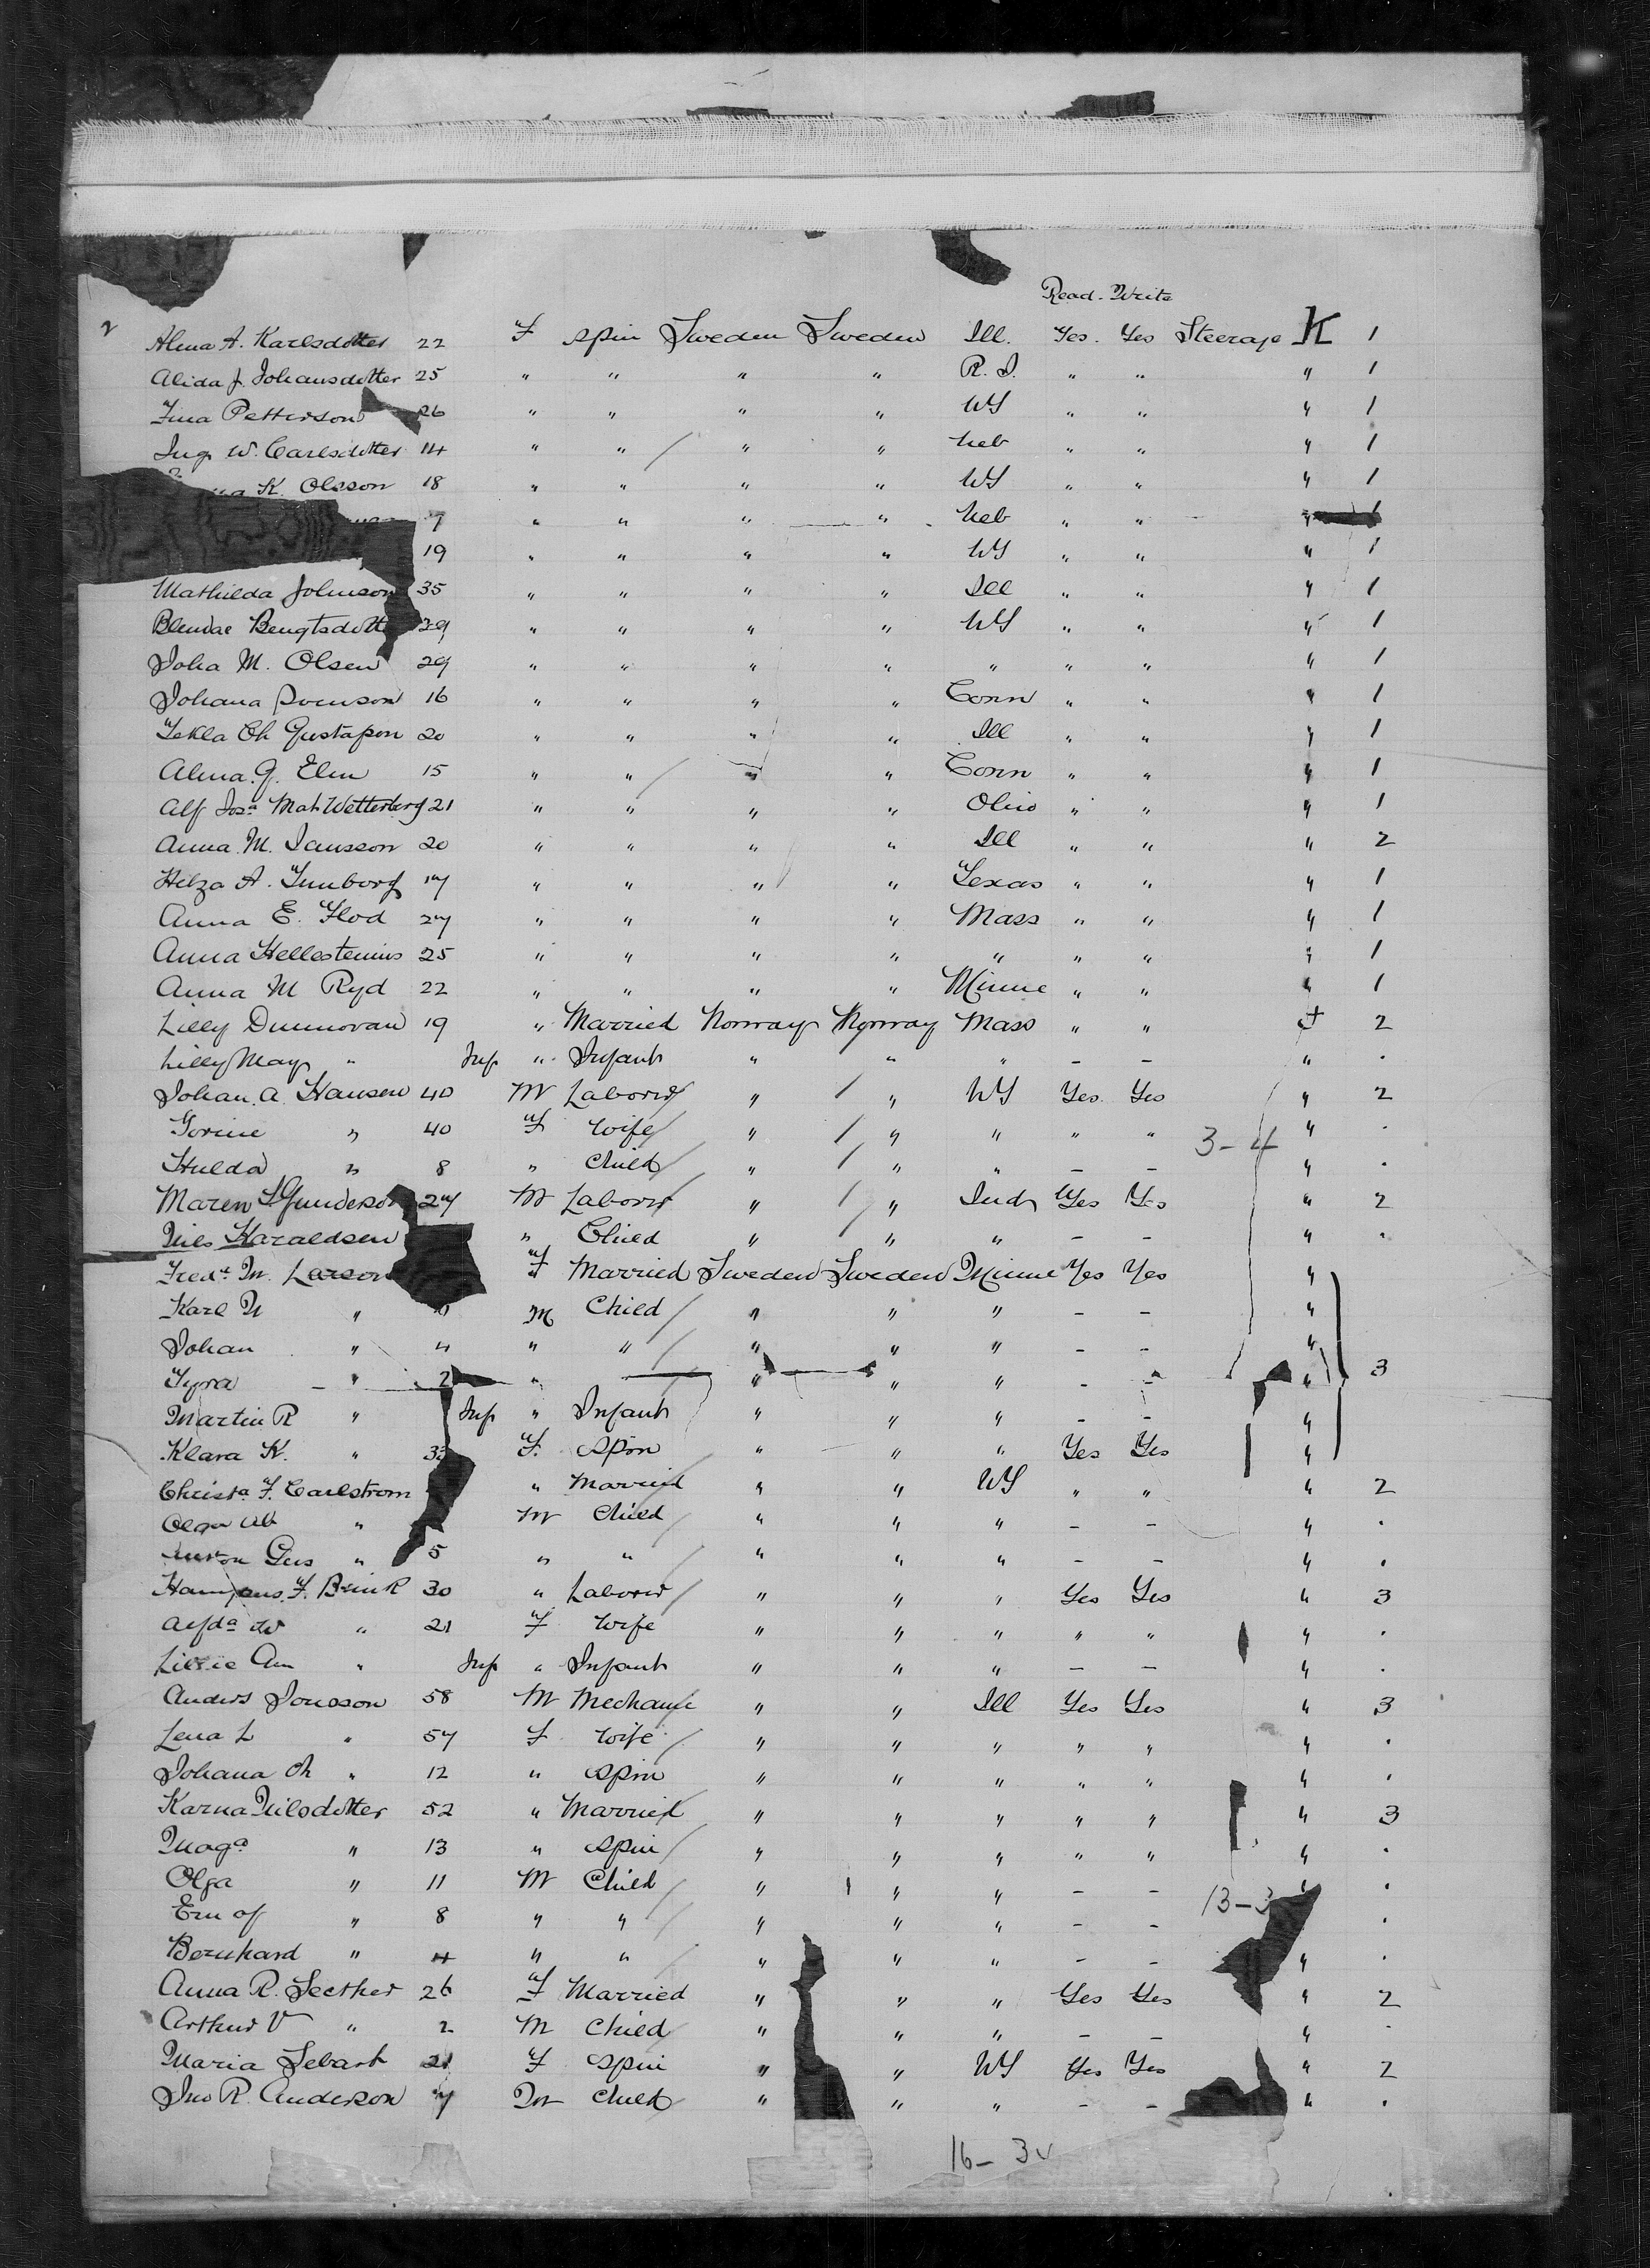 Read. Write
Alma A. Karlsdotter 22 F Spin Sweden Sweden Ill. Yes. Yes Steerage K 1
Alida J. Johansdotter 25 " " " " R. I. " " " 1
Petterson 26 " " " " NY " " " 1
Ing. W. Carlsdotter 14 " " " " Neb " " " 1
K. Olsson 18 " " " " NY " " " 1
7 " " " " Neb " " " 1
19 " " " " NY " " " 1
Mathilda Johnson 35 " " " " Ill " " " 1
Bengtsdott 29 " " " " NY " " " 1
Joha M. Olsen 29 " " " " " " " " 1
Johana Svenson 16 " " " " Conn " " " 1
Tekla Ch Gustafson 20 " " " " Ill " " " 1
Alma. G. Elm 15 " " " " Conn " " " 1
Alf Josa Mat Wetterberg 21 " " " " Ohio " " " 1
Anna. M. Jansson 20 " " " " Ill " " " 2
A. 17 " " " " Texas " " " 1
Anna E. Flod 27 " " " " Mass " " " 1
Anna Hellestenius 25 " " " " " " " " 1
Anna M Ryd 22 " " " " Minne " " " 1
Lilly Dunnovan 19 " Married Norway Norway Mass " " " 2
Lilly May " Inf " Infant " " " - - " .
Johan. A. Hansen 40 M Laborer " " NY Yes. Yes " 2
" 40 F Wife " " " " " " .
3-4
Hulda " 8 " Child " " " - - " .
Maren Gunderson 27 M Laborer " " Ind Yes Yes " 2
Nils Haraldsen " Child " " " - - " .
Freda M. Larson F Married Sweden Sweden Minne Yes Yes "
Karl " M Child " " " - - "
Johan " 4 " " " " " - - "
Tyra " 2 " " " " - - " 3
Martin R " Inf " Infant " " " - - "
Klara K. " F. Spin " " " Yes Yes "
Christa F. Carlstrom " Married " " NY " " " 2
" M Child " " " - - " .
Gus " 5 " " " " " - - " .
F. Brink 30 " Laborer " " " Yes Yes " 3
Alfda W " 21 F Wife " " " " " " .
Lillie An " Inf " Infant " " " - - " .
Anders Jonsson 58 M Mechanic " " Ill Yes Yes " 3
Lena L " 57 F Wife " " " " " " .
Johana Ch " 12 " Spin " " " " " " .
Karna Nilsdotter 52 " Married " " " " " " 3
" 13 " Spin " " " " " " .
Olga " 11 M Child " " " - - " .
13-3
" 8 " " " " " - - .
Bernhard " 4 " " " " " - - " .
Anna R. Secther 26 F Married " " " Yes Yes " 2
Arthur V " 2 M Child " " " - - " .
Maria Sebart 21 F Spin " " NY Yes Yes " 2
Jno R. Anderson 7 M Child " " " - - " .
16-3